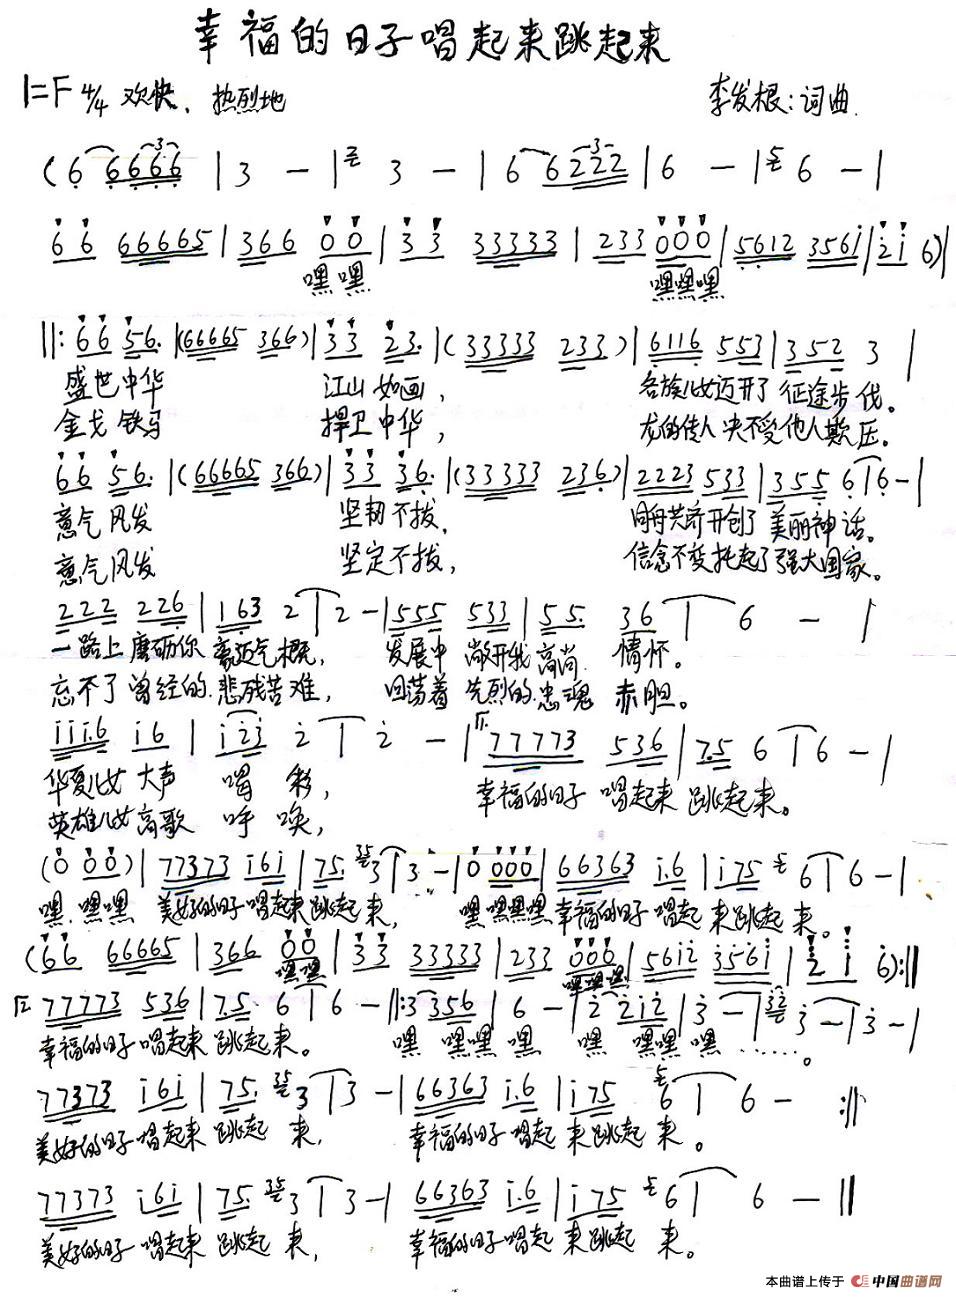 幸福的日子唱起来跳起来
1=F 4/4 欢快、热烈地 李发根:词曲
(6 6666 | 3 - | 3 - | 6 6222 | 6 - | 6 - |
66 66665 | 366 00 | 33 33333 | 233 000 | 5612 3561 | 21 6) |
嘿嘿 嘿嘿嘿
||: 66 56. | (66665 366) | 33 23. | (33333 233) | 6116 553 | 352 3 |
盛世中华 江山如画, 各族儿女迈开了 征途步伐。
金戈铁马 捍卫中华, 龙的传人决不受他人欺压。
66 56. | (66665 366) | 33 36. | (33333 236) | 2223 533 | 355 6 | 6 - |
意气风发 坚韧不拔, 同舟共济开创了 美丽神话。
意气风发 坚定不拔, 信念不变托起了强大国家。
222 226 | 163 2 | 2 - | 555 533 | 55. 36 | 6 - |
一路上磨砺你豪迈气概, 发展中 敞开我高尚 情怀。
忘不了曾经的悲残苦难, 回荡着 先烈的忠魂 赤胆。
111.6 16 | 123 2 | 2 - | 77773 536 | 7.5 6 | 6 - |
华夏儿女 大声 喝彩, 幸福的日子 唱起来 跳起来。
英雄儿女高歌 呼唤,
(0 00) | 77373 161 | 75. 35 3 | 3 - | 0 000 | 66363 1.6 | 175 6 | 6 - |
嘿.嘿嘿 美好的日子唱起来跳起来, 嘿嘿嘿嘿幸福的日子唱起来跳起来。
(66 66665 | 366 00 | 33 33333 | 233 000 | 5612 3561 | 21 6) :||
嘿嘿 嘿嘿嘿
77773 536 | 75. 6 | 6 - ||: 3 356 | 6 - | 2 212 | 3 - | 32 3 - | 3 - |
幸福的日子唱起来跳起来。 嘿 嘿嘿 嘿 嘿 嘿嘿 嘿 ……。
77373 161 | 75. 35 3 | 3 - | 66363 1.6 | 175 6 | 6 - :||
美好的日子唱起来 跳起 来, 幸福的日子唱起 来跳起 来。
77373 161 | 75. 35 3 | 3 - | 66363 1.6 | 175 6 | 6 - ||
美好的日子唱起来 跳起 来, 幸福的日子唱起 来跳起 来。
本曲谱上传于 中国曲谱网